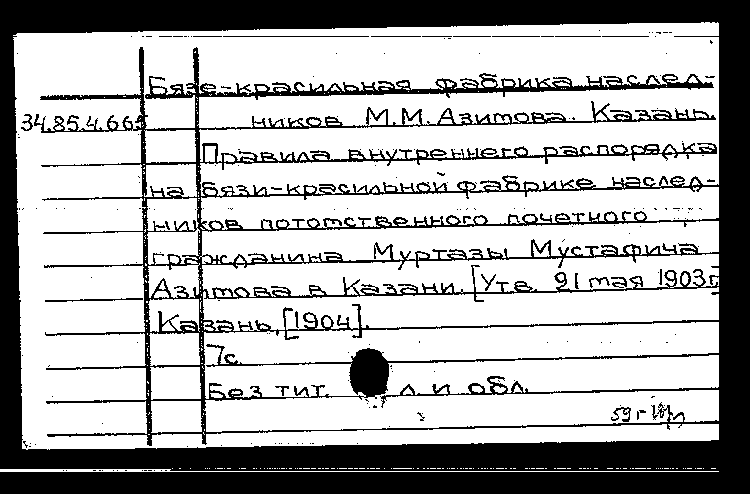 Бязе-красильная фабрика наслед-
34.85.4.665 ников М.М. Азимова. Казань.
Правила внутреннего распорядка
на бязи-красильной фабрике наслед-
ников потомственного почетного
гражданина Муртазы Мустафича
Азимова в Казани. [Утв. 21 мая 1903г
Казань, [1904].
7с.
Без тит. л. и обл.